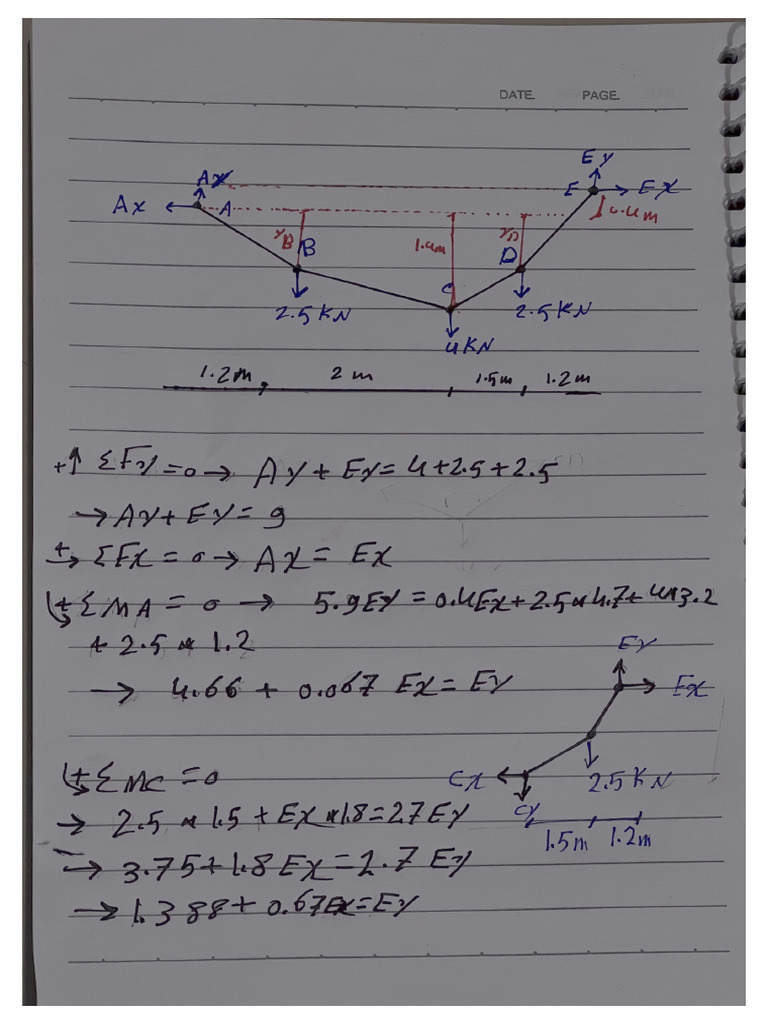 DATE. PAGE.
Ey
Ay
Ax A E Ex
0.4m
yB B 1.4m yD D
C
2.5 KN 2.5 KN
4KN
1.2m 2 m 1.5m 1.2m
+↑ ΣFy = 0 → Ay + Ey = 4+2.5+2.5
→ Ay + Ey = 9
+→ ΣFx = 0 → Ax = Ex
+ ΣMA = 0 → 5.9Ey = 0.4Ex + 2.5*4.7 + 4*3.2
+ 2.5 * 1.2
Ey
→ 4.66 + 0.067 Ex = Ey
Ex
+ ΣMC = 0
Cx 2.5 KN
Cy
→ 2.5 * 1.5 + Ex * 1.8 = 2.7 Ey
1.5m 1.2m
→ 3.75 + 1.8 Ex = 2.7 Ey
→ 1.388 + 0.67Ex = Ey